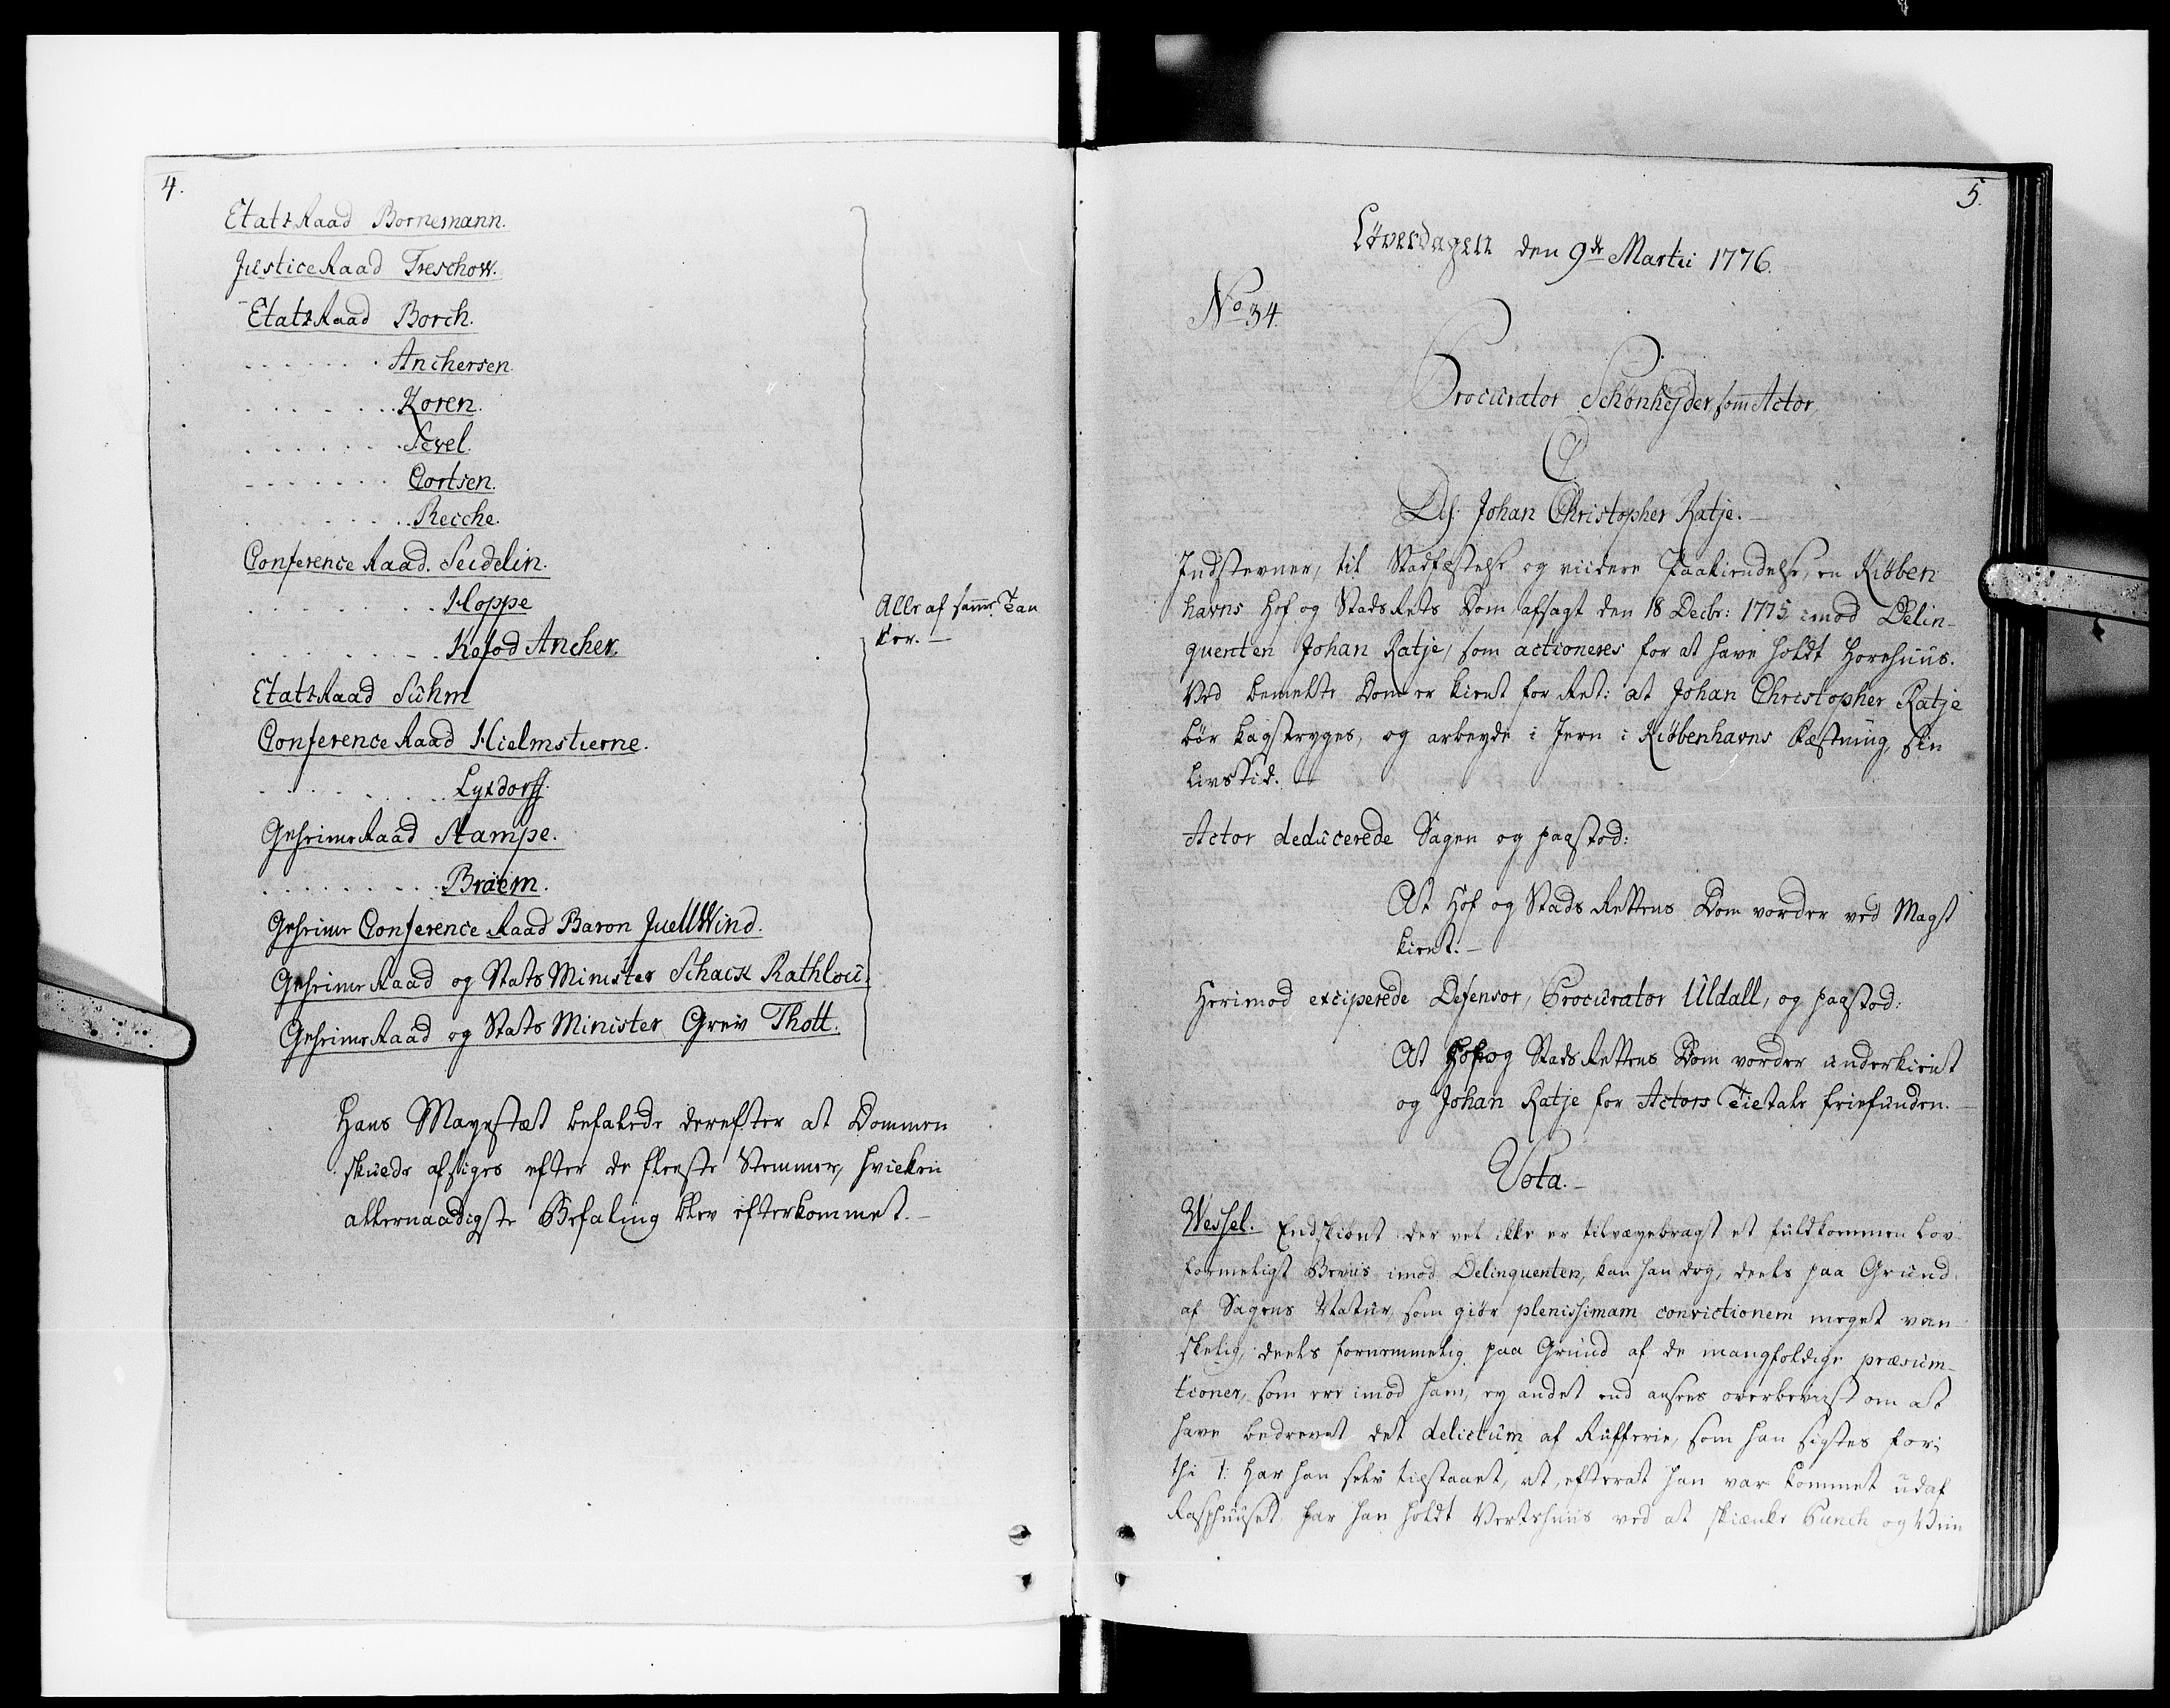 4.
EtatsRaad Bornemann.
JusticeRaad Treschow.
EtatsRaad Borch.
. . . . . . . Anchersen.
. . . . . . . Koren.
. . . . . . . Sevel.
. . . . . . . Cortsen.
. . . . . . . Reiche.
ConferenceRaad Seidelin.
. . . . . . . Hoppe
. . . . . . . Kofod Ancher.
EtatsRaad Suhm
ConferenceRaad Hielmstierne.
. . . . . . . Lyxdorff.
GeheimeRaad Stampe.
. . . . . . . Bræem.
Geheime ConferenceRaad Baron JuellWind.
GeheimeRaad og Stats Minister Schack Rathlou.
GeheimeRaad og Stats Minister Grev Thott.
Alle af samme Tan
ker. —
Hans Mayestæt befalede derefter at Dommen
skulde afsiges efter de fleeste Stemmer, hvilken
allernaadigste Befaling blev efterkommet. —
5.
Løverdagen den 9de Martii 1776.
No 34.
Procurator Schønheyder, som Actor,
C/
Del. Johan Christopher Ratje. —
Indstevner, til Stadfæstelse og viidere Paakiendelse, en Kiøben-
havns Hof og StadsRets Dom afsagt den 18 Decbr: 1775 imod Delin-
quenten Johan Ratje, som actioneres for at have holdt Horehuus.
Ved bemelte Dom er kient for Ret: at Johan Christopher Ratje
bør kagstryges, og arbeyde i Jern i Kiøbenhavns Fæstning, sin
Livstid. —
Actor deducerede Sagen og paastod:
At Hof og Stads Rettens Dom vorder ved Magt
kient. —
Herimod exciperede Defensor, Procurator Uldall, og paastod:
At Hof og Stads Rettens Dom vorder underkient
og Johan Ratje for Actors Tiltale friefunden. —
Vota. —
Wessel. Endskiønt der vel ikke er tilveyebragt et fuldkommen Lov-
formeligt Beviis imod Delinquenten, kan han dog, deels paa Grund
af Sagens Natur, som giør plenissimam convictionem meget van-
skelig, deels fornemmelig paa Grund af de mangfoldige præsum-
tioner, som ere imod ham, ey andet end ansees overbeviist om at
have bedrevet det delictum af Rufferie, som han sigtes for;
thi 1: Har han selv tilstaaet, at, efterat han var kommet udaf
Rasphuuset, har han holdt Vertshuus ved at skienke Punch og Viin